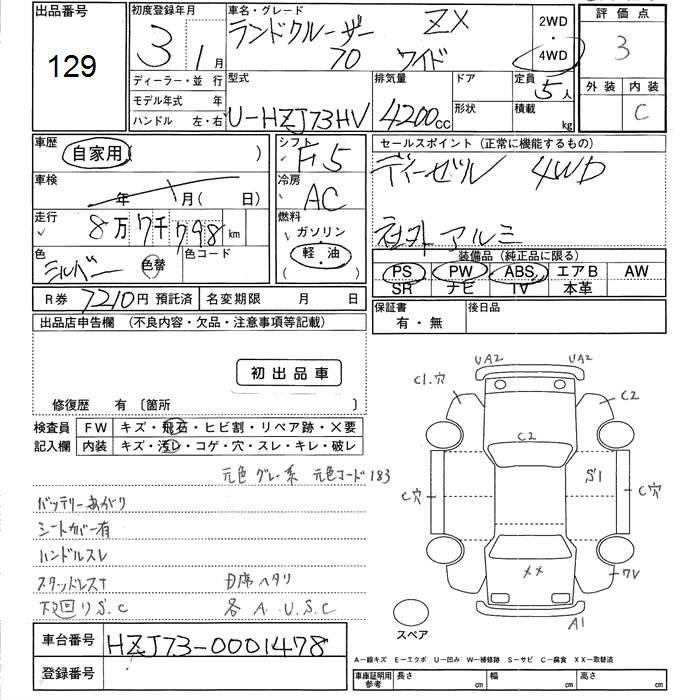 出品番号
129
初度登録年月
3年 1月
車名・グレード
ランドクルーザー ZX
70 ワイド
2WD
・
4WD
評価点
3
外装 内装
C
ディーラー・並行
モデル年式 年
ハンドル 左・右
型式
U-HZJ73HV
排気量
4200cc
ドア
形状
定員
5人
積載
kg
車歴
自家用
)
シフト
F5
セールスポイント(正常に機能するもの)
ディーゼル 4WD
社外アルミ
車検
年 月( 日)
冷房
AC
走行
8万7千798km
燃料
ガソリン
・
軽・油
色
シルバー
色替
色コード
装備品(純正品に限る)
PS PW ABS エアB AW
SR ナビ TV 本革
R券 7210円 預託済
名変期限 月 日
保証書
有・無
後日品
出品店申告欄 (不良内容・欠品・注意事項等記載)
初出品車
修復歴 有 〔箇所 〕
検査員
記入欄
FW キズ・飛石・ヒビ割・リペア跡・×要
内装 キズ・汚レ・コゲ・穴・スレ・キレ・破レ
元色 グレー系 元色コード183
バッテリーあがり
シートカバー有
ハンドルスレ
スタッドレスT 目席ヘタリ
下廻りS.C 各A.U.S.C
車台番号
HZJ73-0001478
登録番号
UA2 UA2
C1.穴 C2
C2
C穴 S1 C穴
XX 7V
A1
スペア
A-線キズ E-エクボ U-凹み W-補修跡 S-サビ C-腐食 XX-取替済
車庫証明用
参考
長さ cm 幅 cm 高さ cm